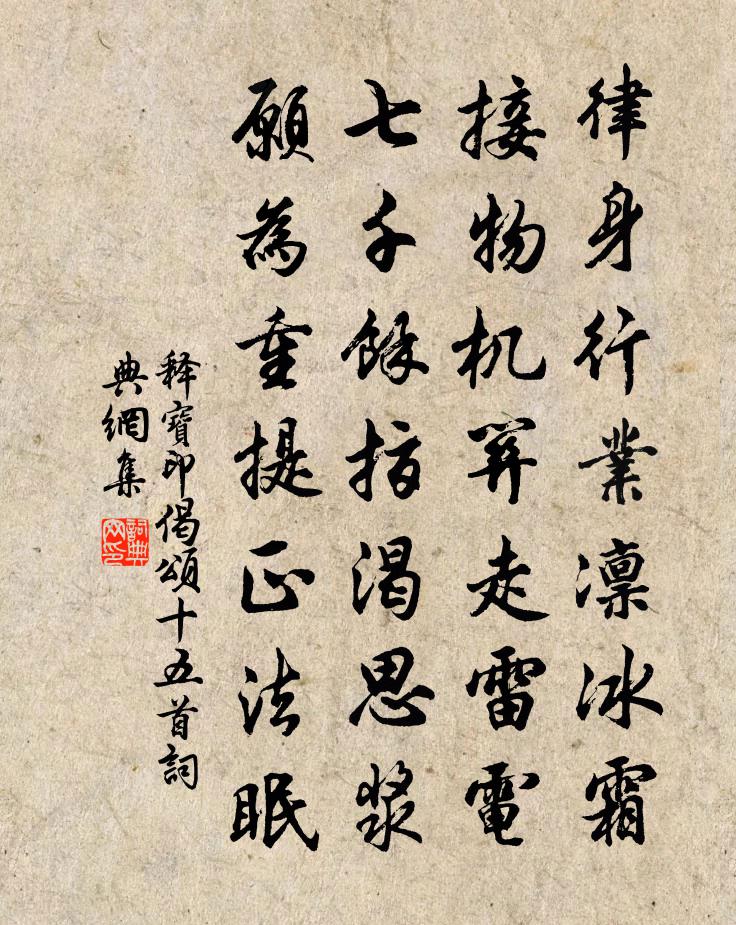 律身行業凛冰霜
接物机笄走雷電
七千餘指渴思漿
願為重提正法眠
释寶印偈頌十五首詞
典網集
詞典
网印